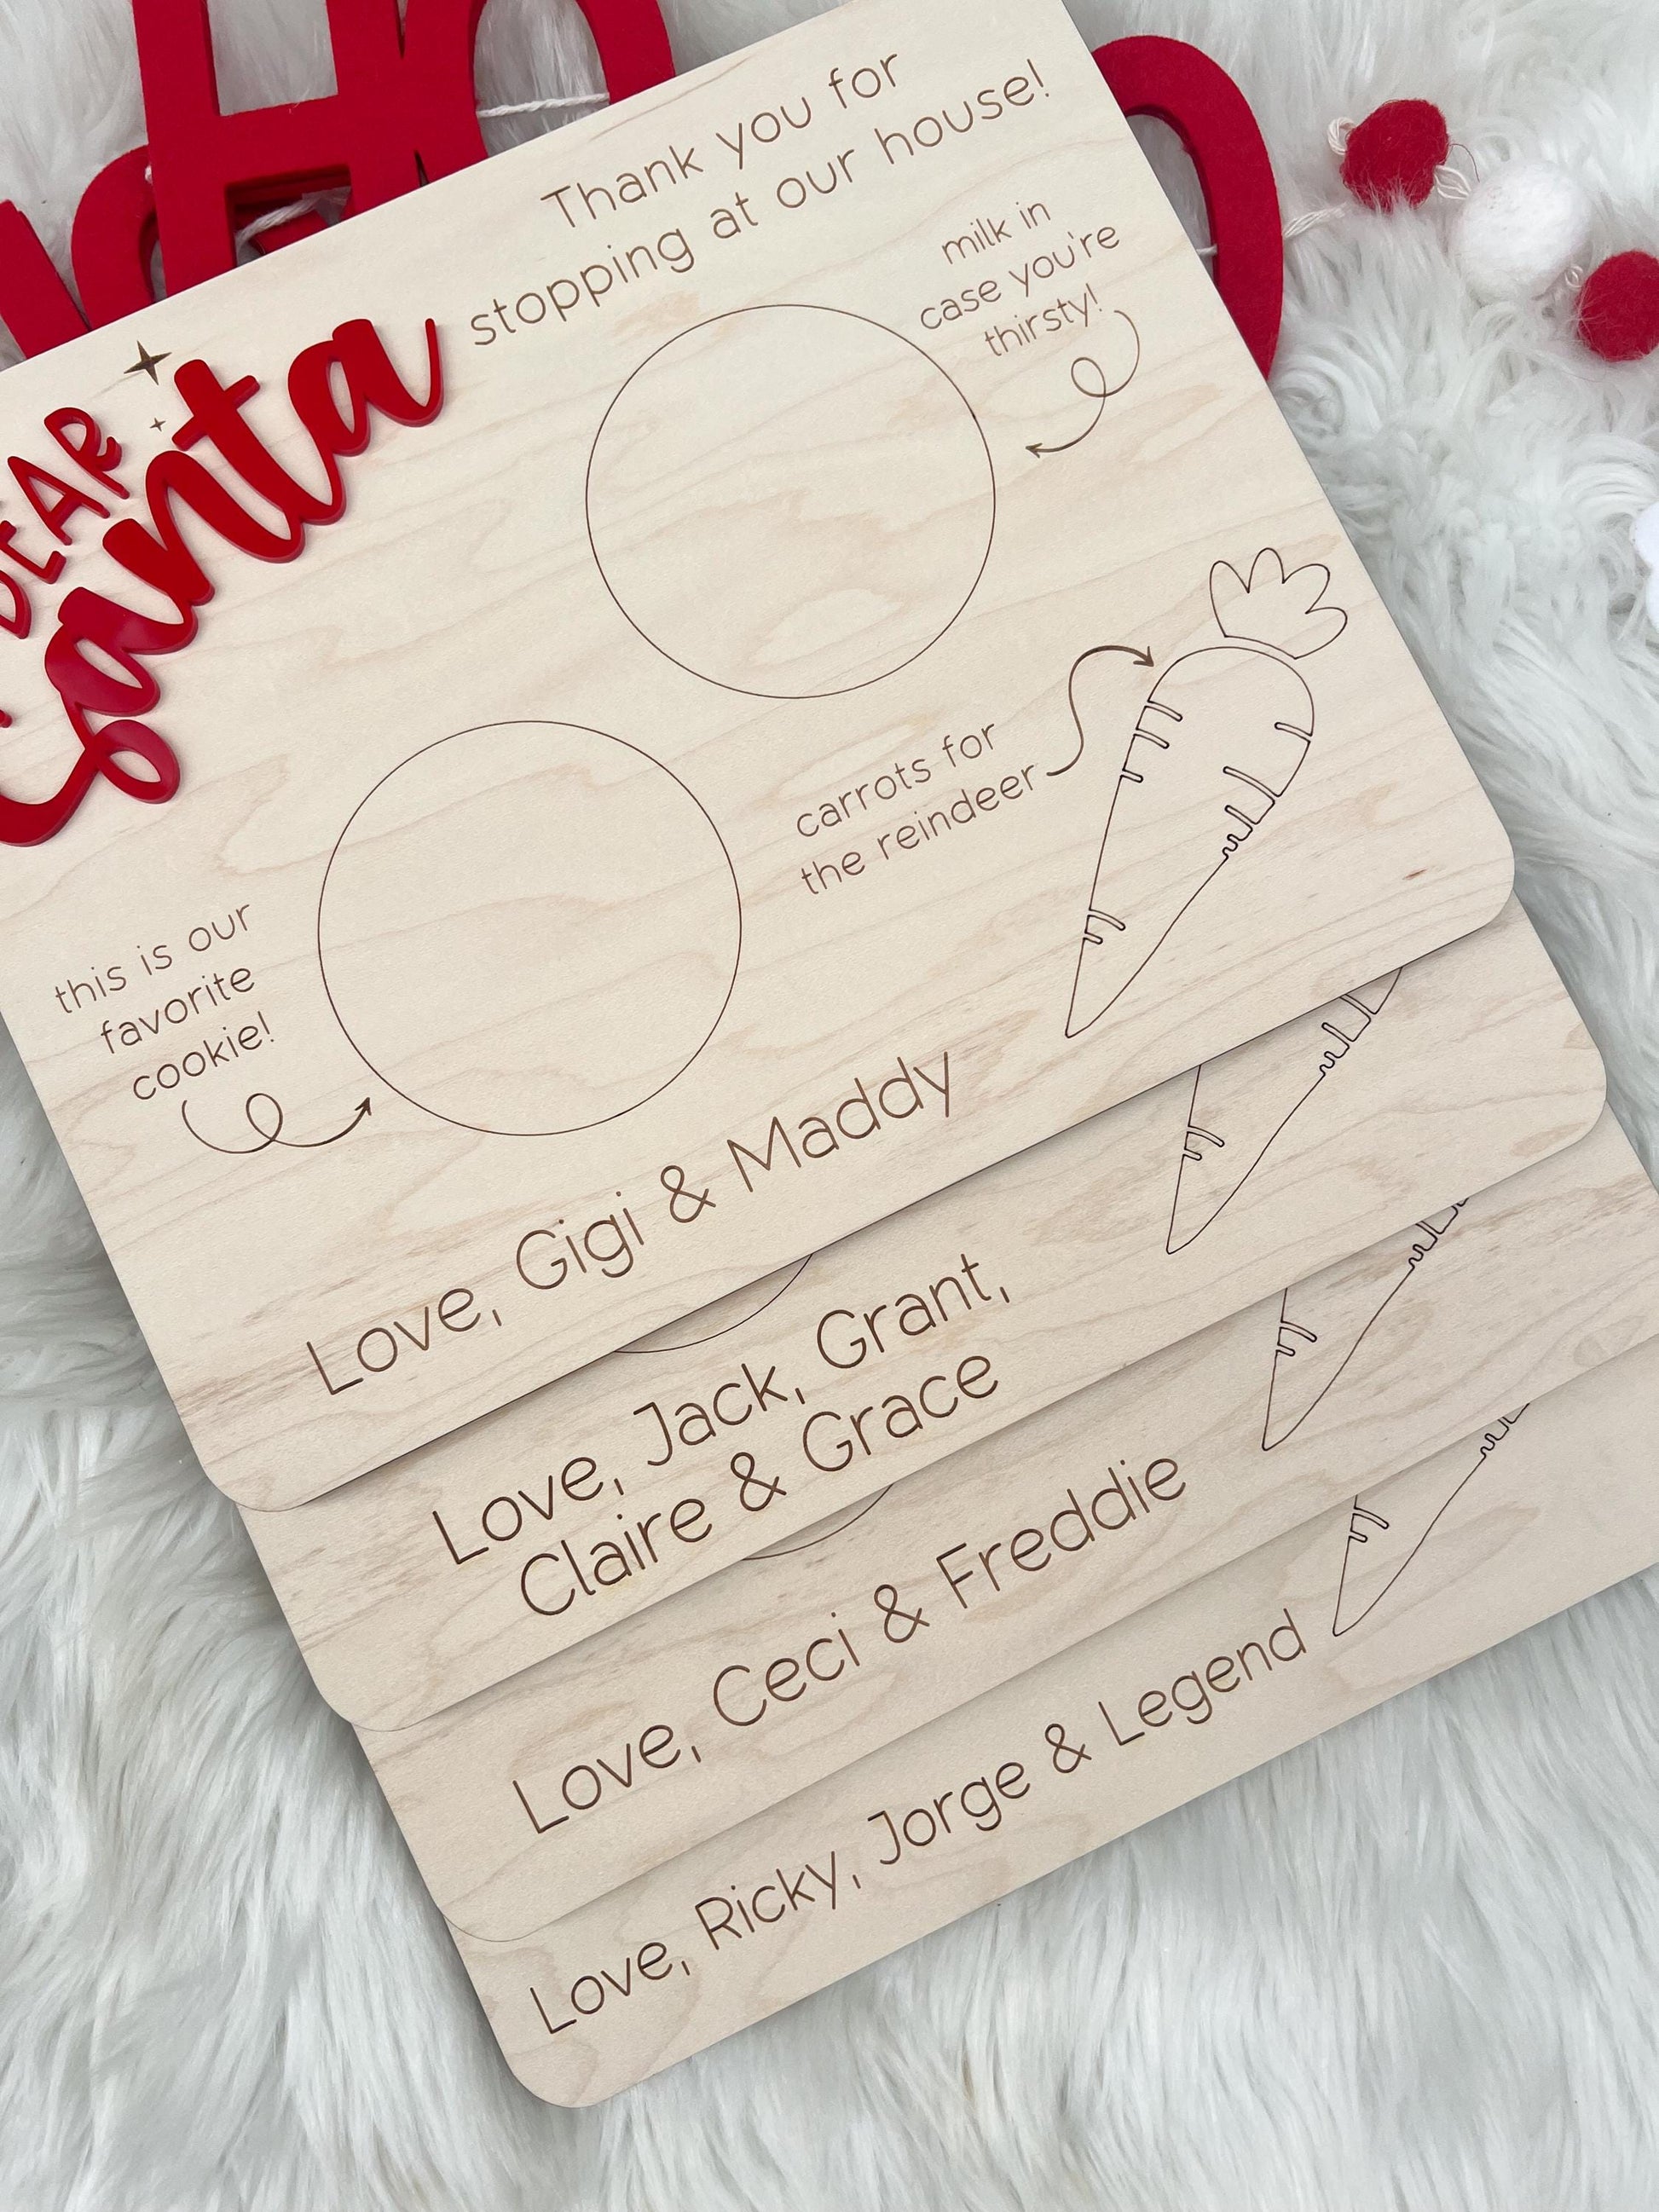 HO
DEAR
Santa
Thank you for
stopping at our house!
milk in
case you're
thirsty!
carrots for
the reindeer
this is our
favorite
cookie!
Love, Gigi & Maddy
Love, Jack, Grant,
Claire & Grace
Love, Ceci & Freddie
Love, Ricky, Jorge & Legend